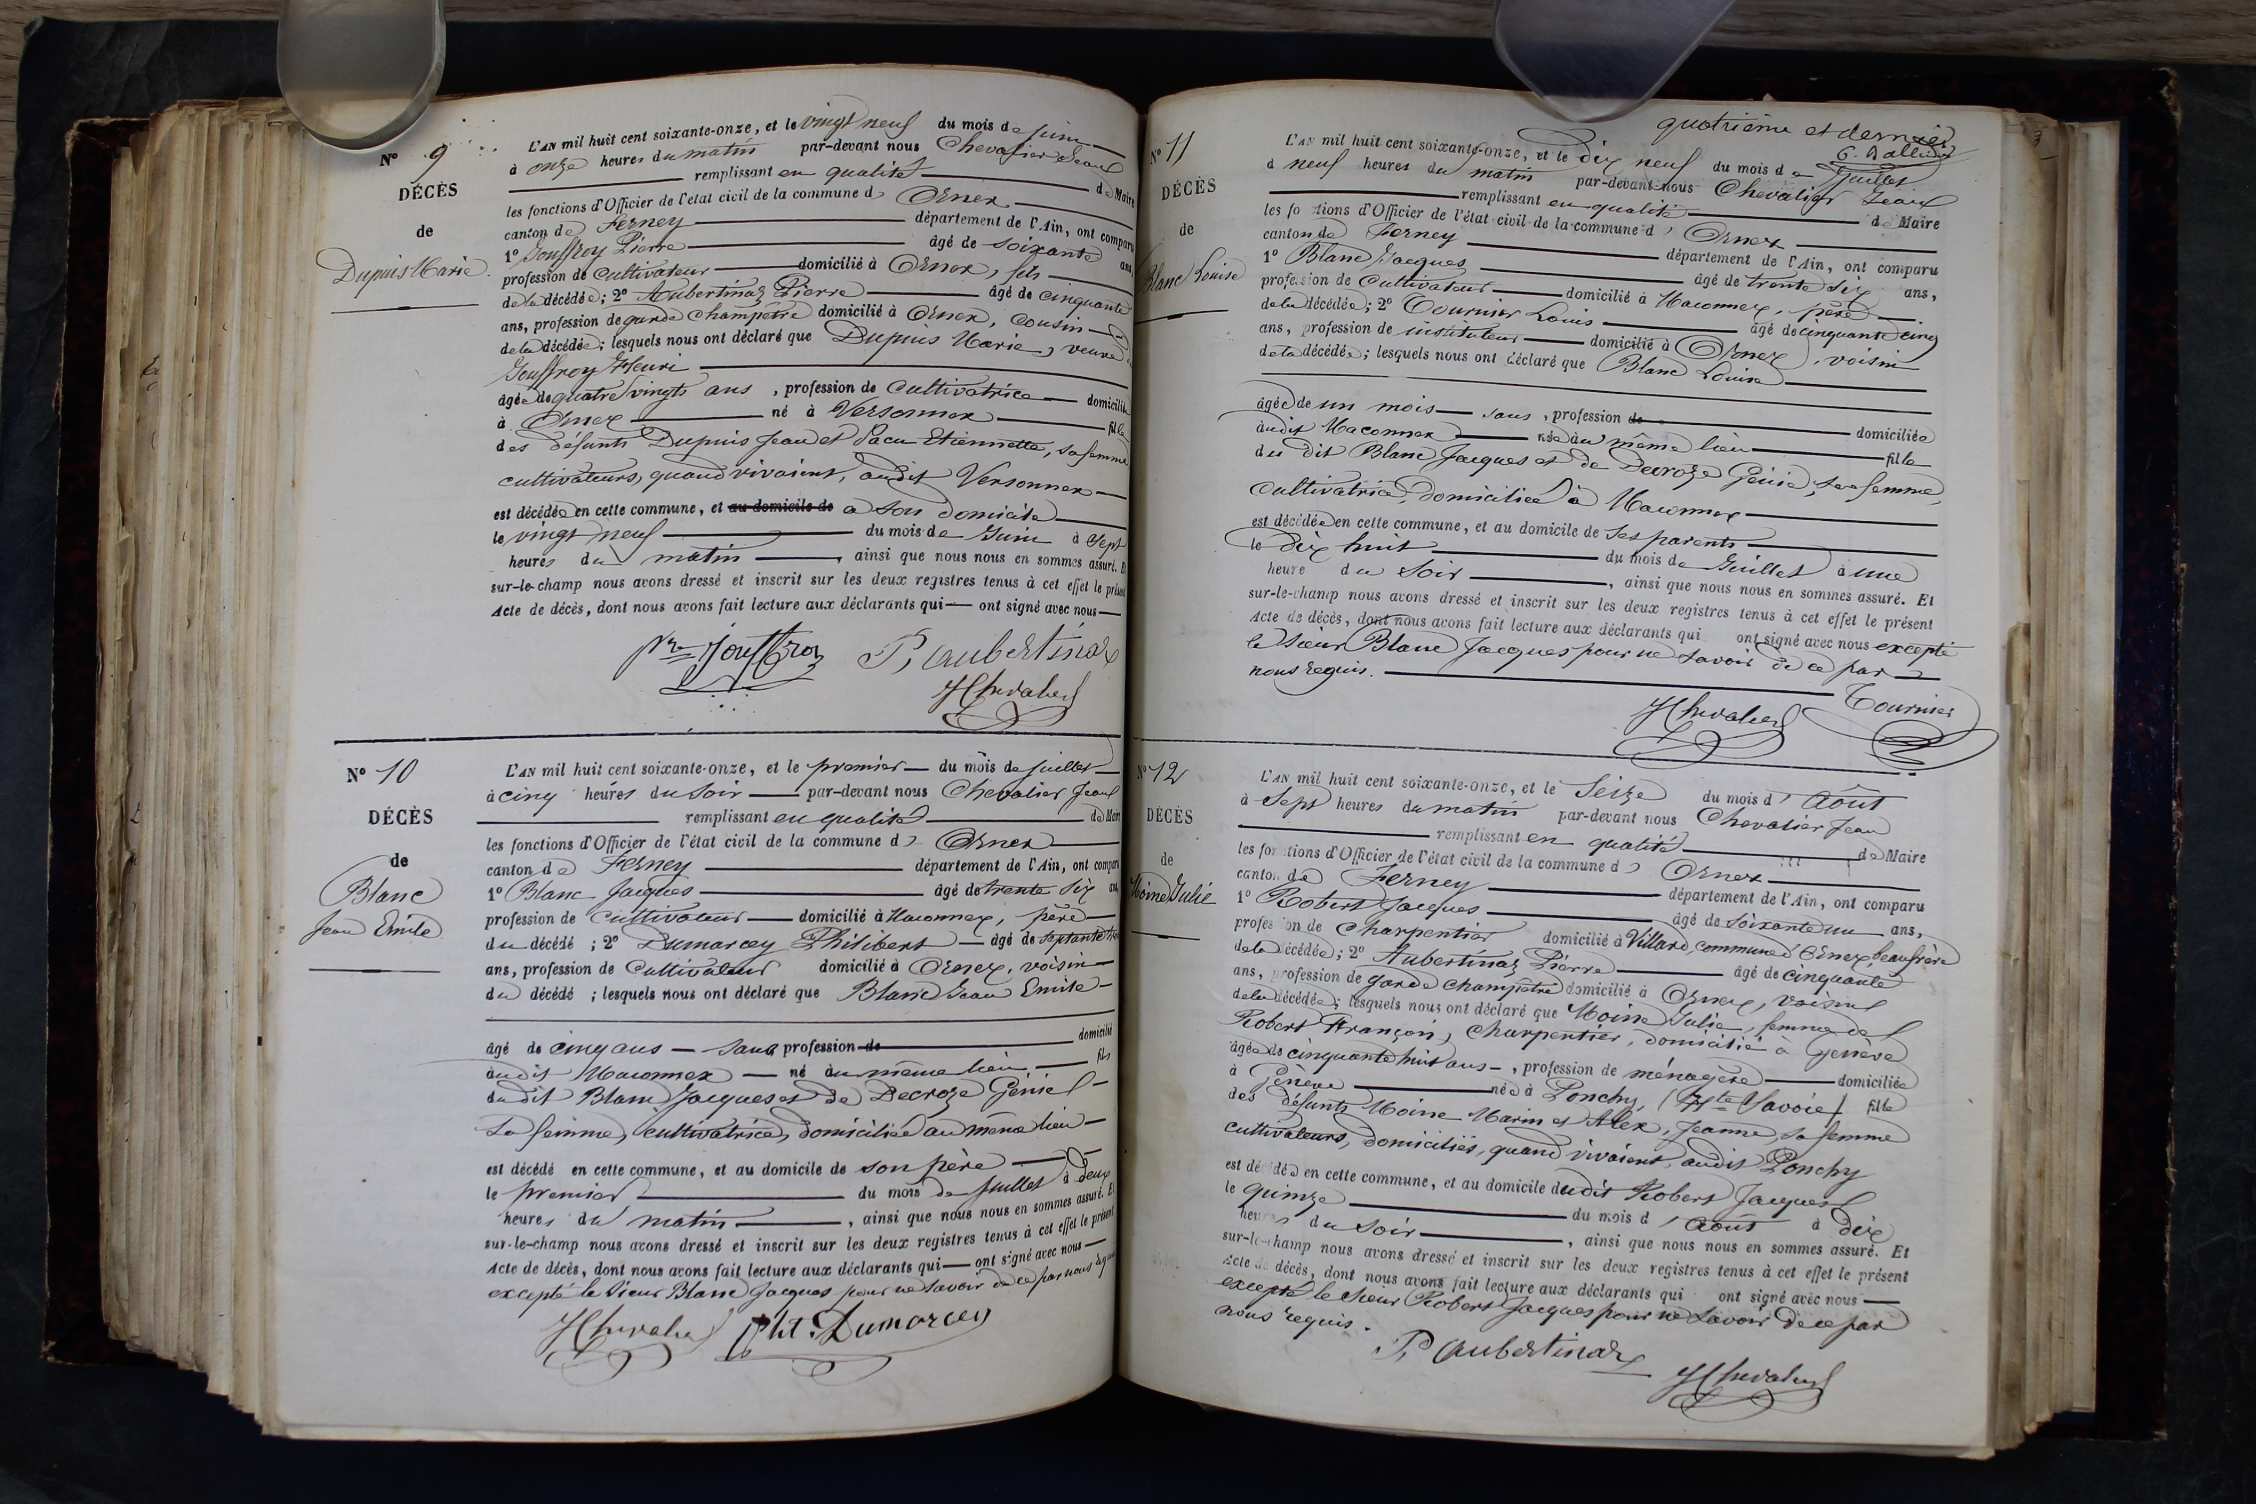 N° 9
DÉCÈS
de
Dupuis Marie
L'AN mil huit cent soixante-onze, et le vingt neuf du mois de juin
à onze heures du matin par-devant nous Chevalier Jean
remplissant en qualité de Maire
les fonctions d'Officier de l'état civil de la commune d' Ornex
canton de Ferney département de l'Ain, ont comparu
1° Gouffroy Pierre âgé de soixante ans,
profession de cultivateur domicilié à Ornex, fils
de la décédée; 2° Aubertinaz Pierre âgé de cinquante
ans, profession de garde champetre domicilié à Ornex, cousin
de la décédée; lesquels nous ont déclaré que Dupuis Marie, veuve
Gouffroy Henri
âgée de quatre vingts ans, profession de cultivatrice domiciliée
à Ornex né à Versonnex fille
des défunts Dupuis Jean et Pacu Etiennette, sa femme
cultivateurs, quand vivaient, audit Versonnex
est décédée en cette commune, et au domicile de à son domicile
le vingt neuf du mois de Juin à sept
heures du matin, ainsi que nous nous en sommes assuré. Et
sur-le-champ nous avons dressé et inscrit sur les deux registres tenus à cet effet le présent
Acte de décès, dont nous avons fait lecture aux déclarants qui ont signé avec nous
Pre Jouffroy P, Aubertinaz
J Chevalier
N° 10
DÉCÈS
de
Blanc
Jean Emile
L'AN mil huit cent soixante-onze, et le premier du mois de juillet
à cinq heures du soir par-devant nous Chevalier Jean
remplissant en qualité de Maire
les fonctions d'Officier de l'état civil de la commune d' Ornex
canton de Ferney département de l'Ain, ont comparu
1° Blanc Jacques âgé de trente six ans,
profession de cultivateur domicilié à Maconnex, père
du décédé; 2° Dumarcey Philibert âgé de septante
ans, profession de cultivateur domicilié à Ornex, voisin
du décédé; lesquels nous ont déclaré que Blanc Jean Emile
âgé de cinq ans sans profession de domicilié
audit Maconnex né au même lieu, fils
dudit Blanc Jacques et de Decroze Génie
sa femme, cultivatrice, domiciliée au même lieu
est décédé en cette commune, et au domicile de son père
le premier du mois de juillet à deux
heures du matin, ainsi que nous nous en sommes assuré. Et
sur-le-champ nous avons dressé et inscrit sur les deux registres tenus à cet effet le présent
Acte de décès, dont nous avons fait lecture aux déclarants qui ont signé avec nous
excepté le sieur Blanc Jacques pour ne savoir de ce par nous requis
J Chevalier Pht. Dumarcey
quatrième et dernier
N° 11
DÉCÈS
de
Blanc Louise
L'AN mil huit cent soixante-onze, et le dix neuf du mois de Juillet
à neuf heures du matin par-devant nous Chevalier Jean
remplissant en qualité de Maire
les fonctions d'Officier de l'état civil de la commune d' Ornex
canton de Ferney département de l'Ain, ont comparu
1° Blanc Jacques âgé de trente six ans,
profession de cultivateur domicilié à Maconnex, père
de la décédée; 2° Tournier Louis âgé de cinquante cinq
ans, profession de instituteur domicilié à Ornex, voisin
de la décédée; lesquels nous ont déclaré que Blanc Louise
âgée de un mois sans, profession de domiciliée
audit Maconnex née au même lieu fille
du dit Blanc Jacques et de Decroze Génie, sa femme,
cultivatrice, domiciliée à Maconnex
est décédée en cette commune, et au domicile de ses parents
le dix huit du mois de Juillet à une
heure du soir, ainsi que nous nous en sommes assuré. Et
sur-le-champ nous avons dressé et inscrit sur les deux registres tenus à cet effet le présent
Acte de décès, dont nous avons fait lecture aux déclarants qui ont signé avec nous excepté
le sieur Blanc Jacques pour ne savoir de ce par
nous requis.
J Chevalier Tournier
N° 12
DÉCÈS
de
Moine Julie
L'AN mil huit cent soixante-onze, et le Seize du mois d' Août
à sept heures du matin par-devant nous Chevalier Jean
remplissant en qualité de Maire
les fonctions d'Officier de l'état civil de la commune d' Ornex
canton de Ferney département de l'Ain, ont comparu
1° Robert Jacques âgé de soixante un ans,
profession de charpentier domicilié à Villard, commune d'Ornex, beaufrère
de la décédée; 2° Aubertinaz Pierre âgé de cinquante
ans, profession de garde champêtre domicilié à Ornex, voisin
de la décédée; lesquels nous ont déclaré que Moine Julie, femme de
Robert François, charpentier, domicilié à Genève
âgée de cinquante huit ans, profession de ménagère domiciliée
à Genève née à Lonchy, (Hte Savoie) fille
des défunts Moine Marin et Alex, Jeanne, sa femme
cultivateurs, domiciliés, quand vivaient, audit Lonchy
est décédée en cette commune, et au domicile dudit Robert Jacques
le quinze du mois d' août à dix
heures du soir, ainsi que nous nous en sommes assuré. Et
sur-le-champ nous avons dressé et inscrit sur les deux registres tenus à cet effet le présent
Acte de décès, dont nous avons fait lecture aux déclarants qui ont signé avec nous
excepté le sieur Robert Jacques pour ne savoir de ce par
nous requis.
P, Aubertinaz J Chevalier